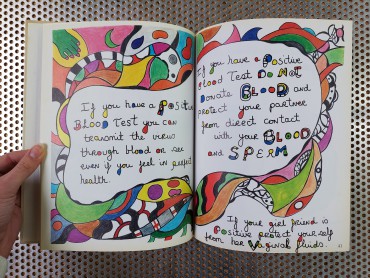 If you have a POSITIVE
BLOOD TEST you can
transmit the virus
through blood or sex
even if you feel in perfect
health.
If you have a POSITIVE
BLOOD TEST DO NOT
DONATE BLOOD and
protect your partner
from direct contact
with your BLOOD
and SPERM
If your girl friend is
POSITIVE protect yourself
from her Vaginal fluids.